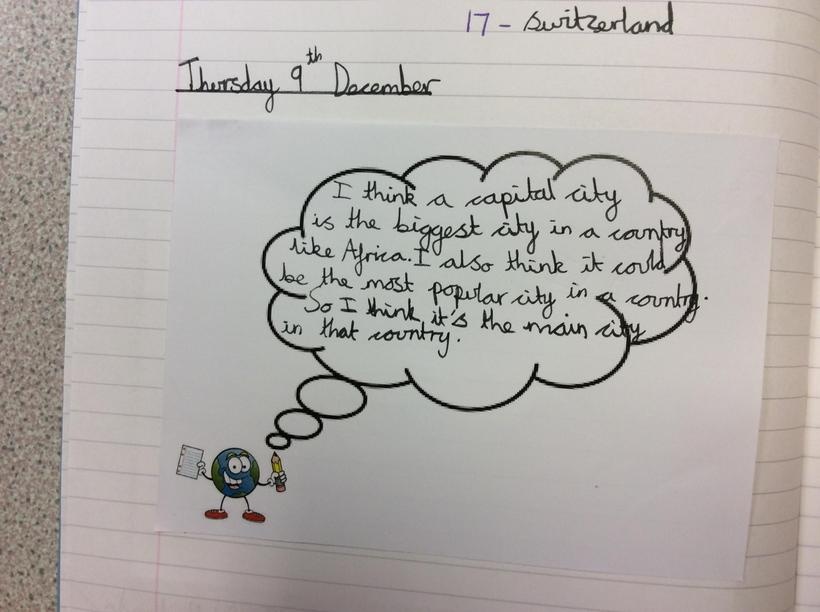 17 - Switzerland
Thursday 9th December
I think a capital city
is the biggest city in a country
like Africa. I also think it could
be the most popular city in a country.
So I think it's the main city
in that country.